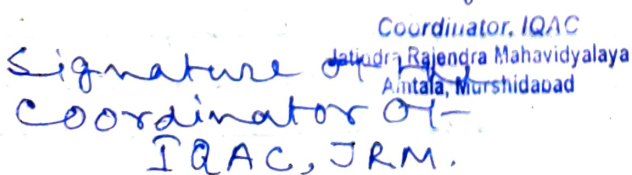 Coordinator, IQAC
Jatindra Rajendra Mahavidyalaya
Amtala, Murshidabad
Signature of the
Coordinator of
IQAC, JRM.